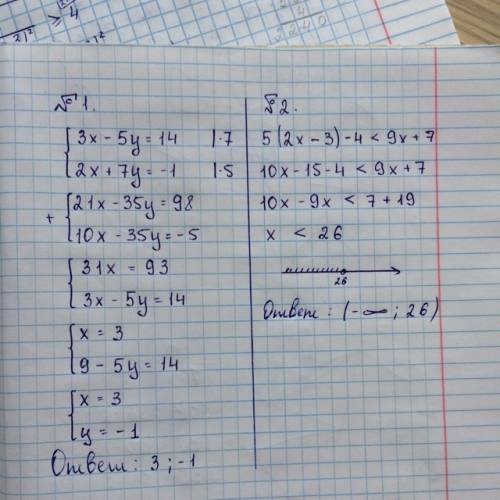 №1.
{3x - 5y = 14 |·7
{2x + 7y = -1 |·5
+ {21x - 35y = 98
{10x - 35y = -5
{31x = 93
{3x - 5y = 14
{x = 3
{9 - 5y = 14
{x = 3
{y = -1
Ответ: 3 ; -1
№2.
5(2x - 3) - 4 < 9x + 7
10x - 15 - 4 < 9x + 7
10x - 9x < 7 + 19
x < 26
26
Ответ: (-∞ ; 26)